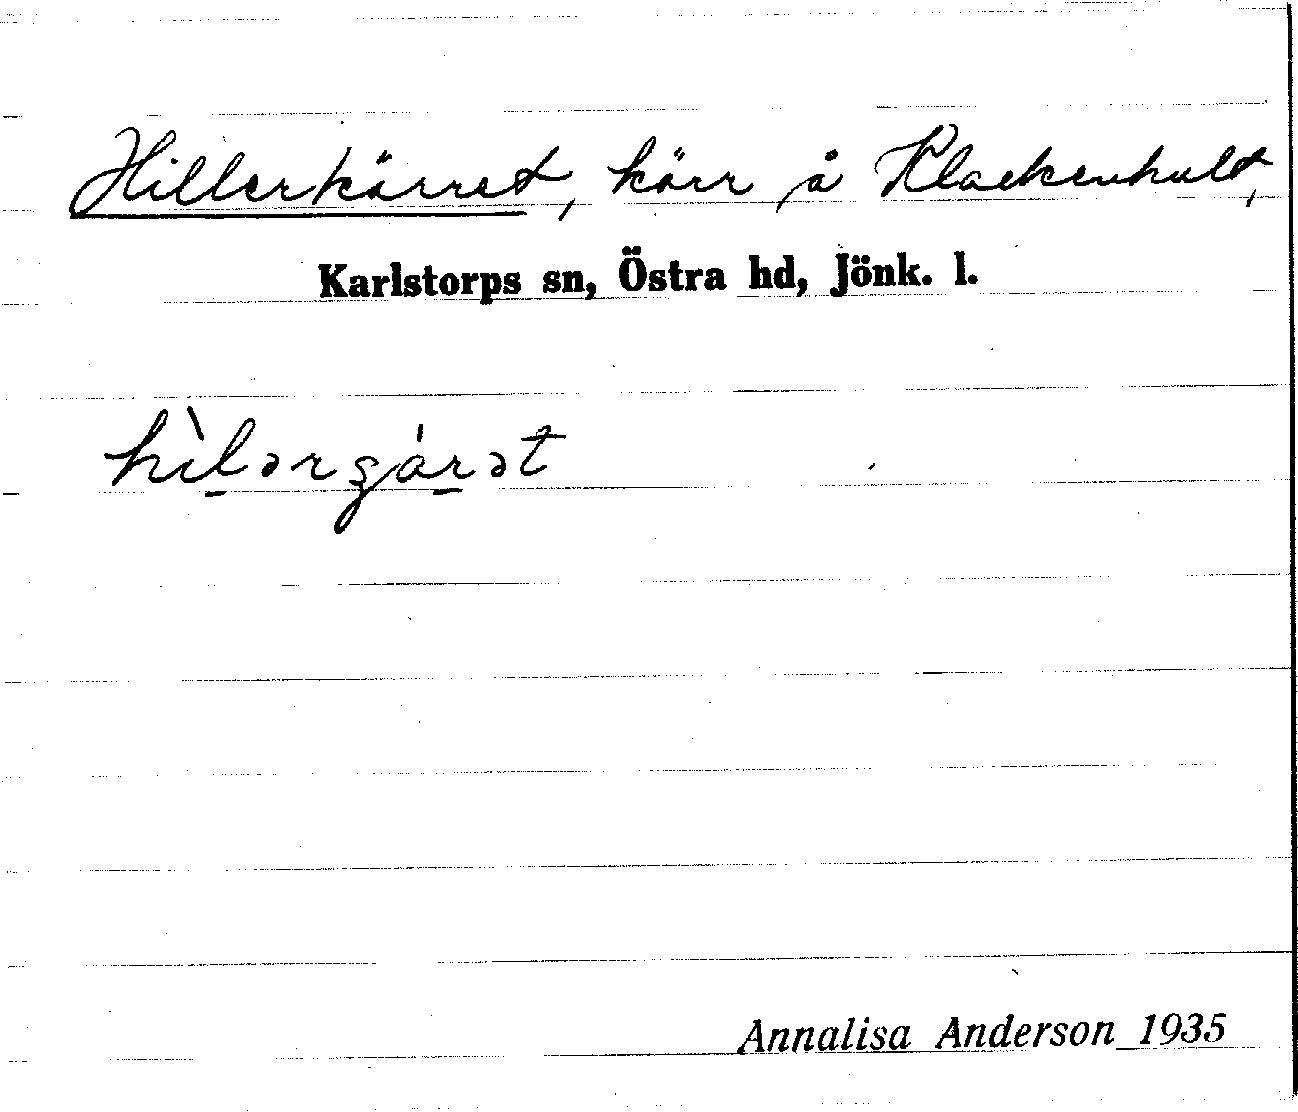 Hillerkärret, kärr å Klackenhult,
Karlstorps sn, Östra hd, Jönk. l.
hìl̠ərgár̠ət
Annalisa Anderson 1935